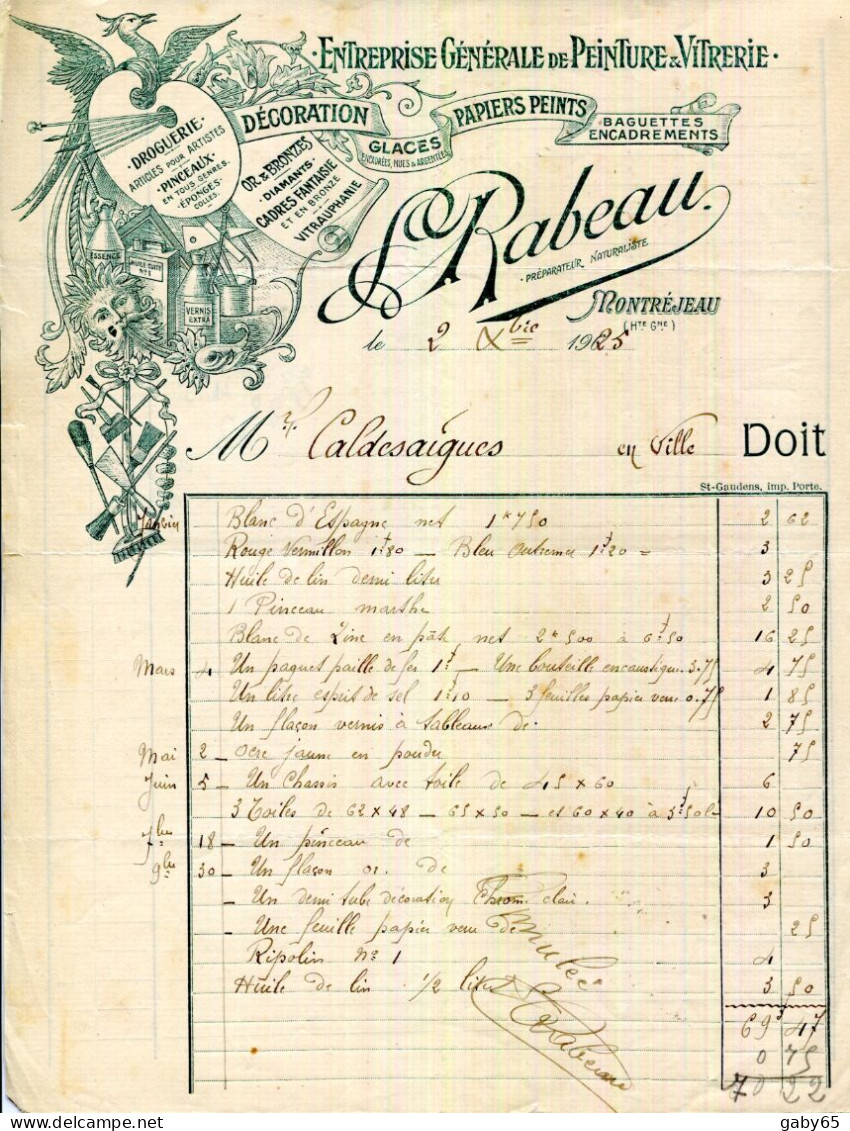 ENTREPRISE GÉNÉRALE DE PEINTURE & VITRERIE
DÉCORATION
GLACES
PAPIERS PEINTS
BAGUETTES
ENCADREMENTS
DROGUERIE
ARTICLES POUR ARTISTES
PINCEAUX
EN TOUS GENRES
ÉPONGES
COLLES
OR & BRONZES
DIAMANTS
CADRES FANTAISIE
ET EN BRONZE
VITRAUPHANIE
ESSENCE
VERNIS
EXTRA
L Rabeau.
PRÉPARATEUR NATURALISTE
MONTRÉJEAU
(HTE GNE)
le 2 Xbre 1925
Mr Caldesaigues en Ville Doit
St-Gaudens, Imp. Porte.
Janvier Blanc d'Espagne net 1k750 2 62
Rouge Vermillon 1f80 — Bleu Outremer 1f20 = 3
Huile de lin demi litre 3 25
1 Pinceau marthe 2 50
Blanc de Zinc en pâte net 2k500 à 6f50 16 25
Mars 4 Un paquet paille de fer 1f — Une bouteille encaustique 3.75 4 75
Un litre esprit de sel 1f10 — 3 feuilles papier verre 0.75 1 85
Un flaçon vernis à tableaux de 2 75
Mai 2 — Ocre jaune en poudre 75
Juin 5 — Un Chassis avec toile de 45 x 60 6
3 Toiles de 62 x 48 — 65 x 50 — et 60 x 40 à 3f50 10 50
7bre 18 — Un pinceau de 1 50
9bre 30 — Un flaçon or de 3
— Un demi tube décoration Chrome clair 3
— Une feuille papier verre de 25
Ripolin No 1 4
Huile de lin 1/2 litre 3 50
Rabeau
69 47
0 75
70 22
delcampe.net
gaby65